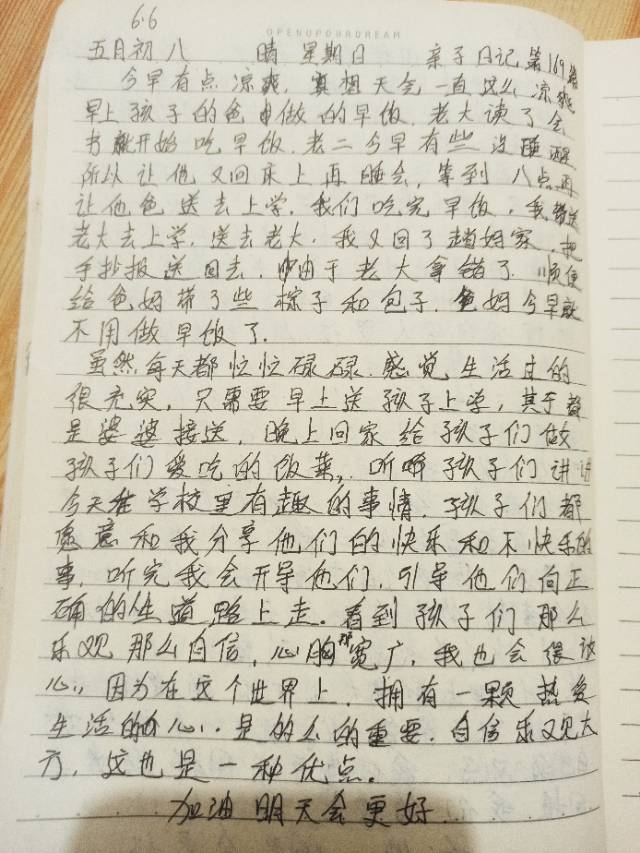 6.6
OPENUPOURDREAM
五月初八 晴 星期日 亲子日记第169篇
今早有点凉爽，真想天气一直这么凉爽
早上孩子的爸中做的早饭，老大读了会
书就开始吃早饭，老二今早有些没睡醒
所以让他又回床上再睡会，等到八点再
让他爸送去上学，我们吃完早饭，我送
老大去上学，送去老大，我又回了趟妈家，把
手抄报送回去，由于老大拿错了，顺便
给爸妈带了些粽子和包子，爸妈今早就
不用做早饭了。
虽然每天都忙忙碌碌，感觉生活过的
很充实，只需要早上送孩子上学，其于都
是婆婆接送，晚上回家给孩子们做
孩子们爱吃的饭菜，听听孩子们讲讲
今天在学校里有趣的事情，孩子们都
愿意和我分享他们的快乐和不快乐的
事，听完我会开导他们，引导他们向正
确的人生道路上走。看到孩子们那么
乐观那么自信，心胸那宽广，我也会很放
心，因为在这个世界上，拥有一颗热爱
生活的心，是的么的重要，自信乐观大
方，这也是一种优点。
加油明天会更好